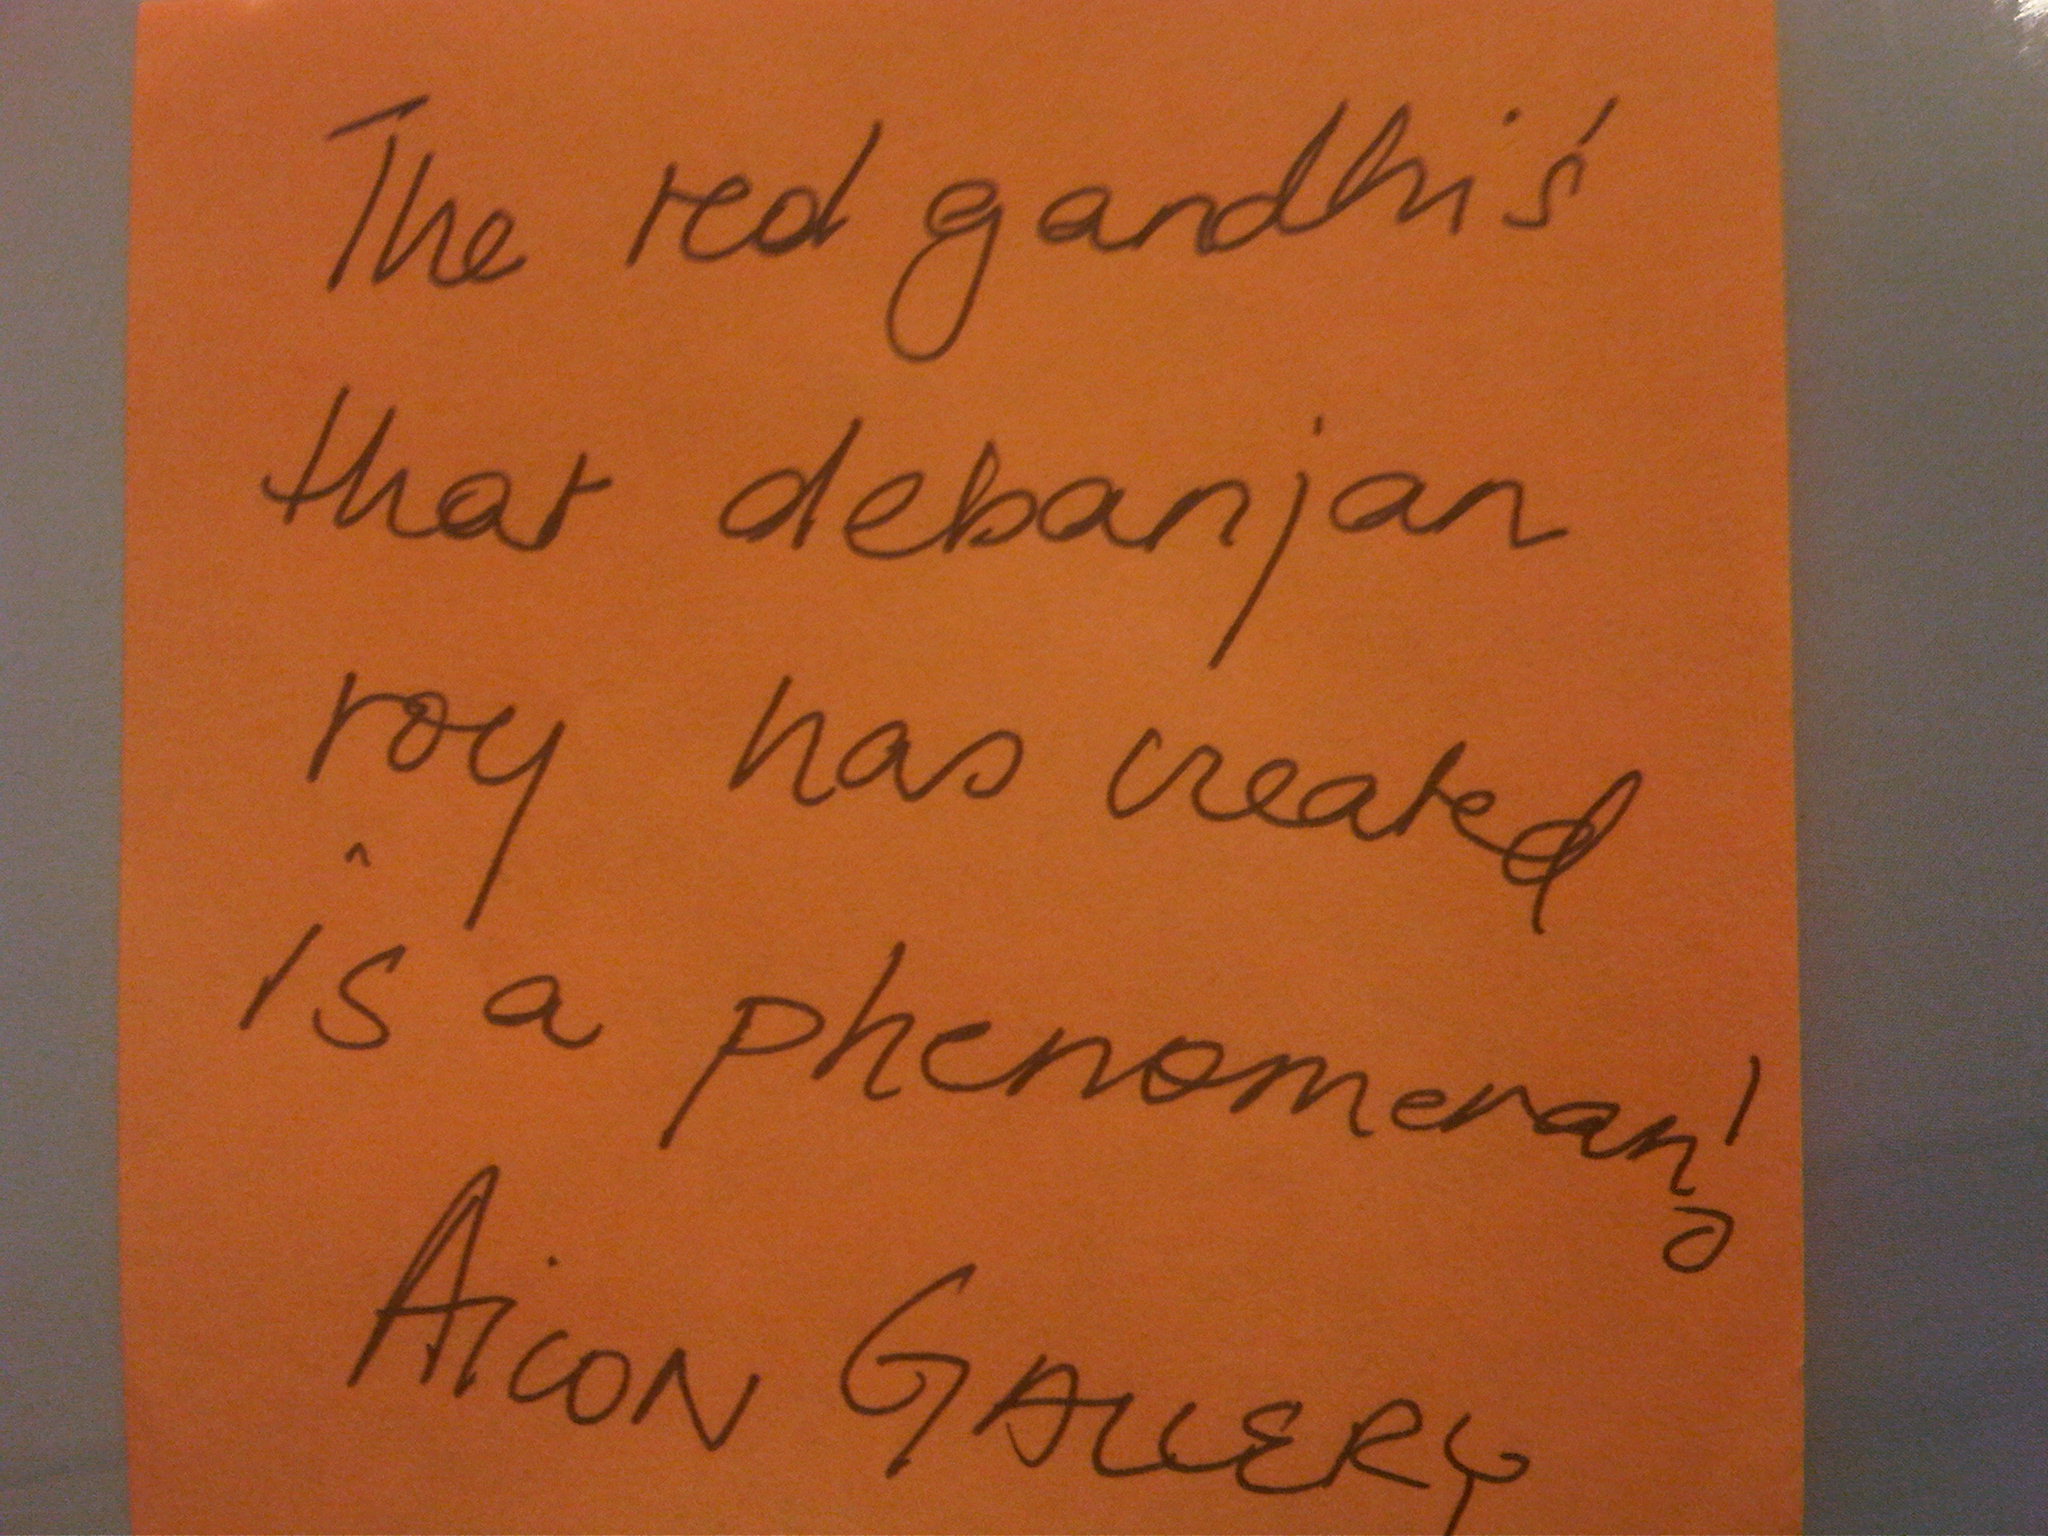 The red gandhi's
that debanjan
roy has created
is a phenomenan!
AiCON GALLERY